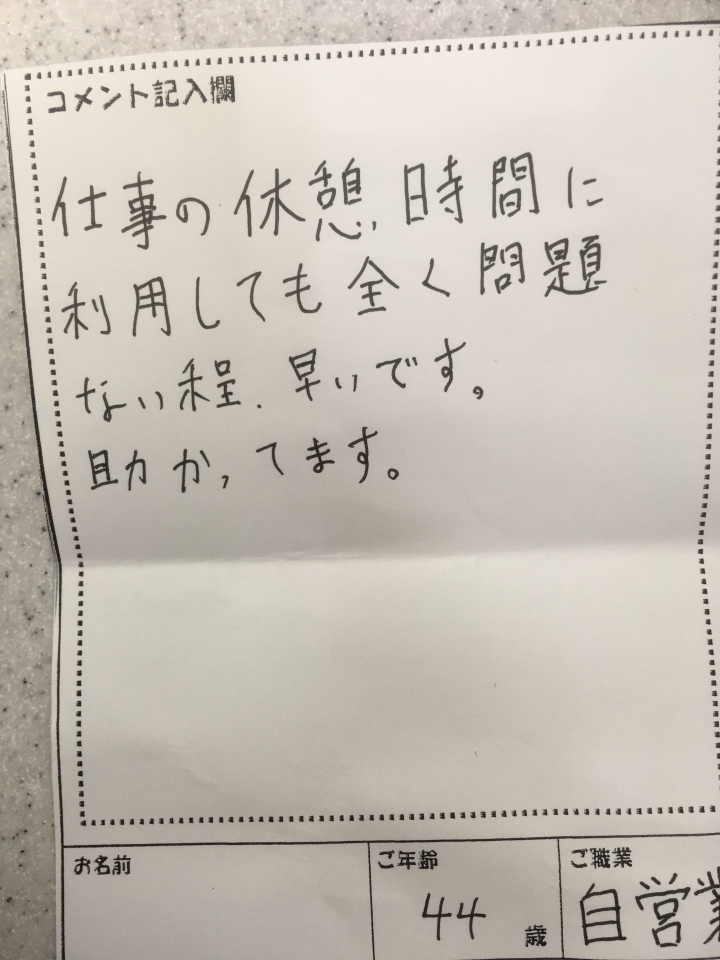 コメント記入欄
仕事の休憩時間に
利用しても全く問題
ない程、早いです。
助かってます。
お名前
ご年齢
44
歳
ご職業
自営業